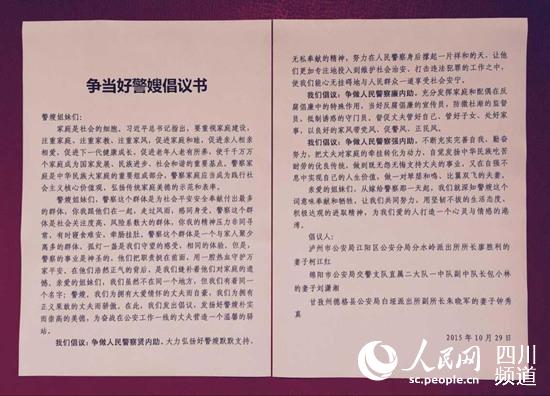 争当好警嫂倡议书
警嫂姐妹们：
家庭是社会的细胞。习近平总书记指出，要重视家庭建设，
注重家庭、注重家教、注重家风，促进家庭和睦，促进亲人相亲
相爱，促进下一代健康成长，促进老年人老有所养，使千千万万
个家庭成为国家发展、民族进步、社会和谐的重要基点。警察家
庭是中华民族大家庭的重要组成部分，警察家庭应当成为践行社
会主义核心价值观，弘扬传统家庭美德的示范和表率。
警嫂姐妹们，警察这个群体是为社会平安安全奉献付出最多
的群体，你我跟他们在一起，走过风雨，感同身受。警察这个群
体是社会关注度高、风险系数大的群体，你我的精神压力非同寻
常，有时寝食难安、牵肠挂肚。警察这个群体是一个与家人聚少
离多的群体，孤灯一盏是我们守望的感受，相同的体验。但是，
警察的事业是神圣的，他们把职责挺在前面，用一腔热血守护万
家平安，在他们浩然正气的背后，是我们缝补着他们对家庭的遗
憾。亲爱的姐妹们，我们虽然不在同一个地方，但我们有着同一
个名字：警嫂，我们为拥有大爱情怀的丈夫而自豪，我们为拥有
正义果敢的丈夫而骄傲。在此，我们发出倡议，发扬好警嫂朴实
而崇高的美德，为奋战在公安工作一线的丈夫营造一个温馨的驿
站。
我们倡议：争做人民警察贤内助。大力弘扬好警嫂默默支持、
无私奉献的精神，努力在人民警察身后撑起一片祥和的天，让他
们更加专注地投入到维护社会治安、打击违法犯罪的工作之中，
使我们能心无挂碍地与人民群众一道享受社会安宁。
我们倡议：争做人民警察廉内助。充分发挥家庭和配偶在反
腐倡廉中的特殊作用，当好反腐倡廉的宣传员，防微杜渐的监督
员，抵制诱惑的守门员，督促丈夫管好自己、管好子女、处好家
事，以良好的家风带党风、促警风、正民风。
我们倡议：争做人民警察强内助。不断充实完善自我，勤奋
努力，把丈夫对家庭的牵挂转化为动力，自觉发扬中华民族吃苦
耐劳的优良传统，做到既无怨无悔支持丈夫的事业，又在自强不
息中实现自己的人生价值，做一对举案和鸣、比翼双飞的夫妻。
亲爱的姐妹们，从嫁给警察那一天起，我们就深知警嫂这个
词意味奉献和牺牲，让我们共同努力，用坚韧不拔的生活态度，
积极达观的进取精神，为我们爱的人打造一个心灵与情感的港
湾。
倡议人：
泸州市公安局江阳区公安分局分水岭派出所所长廖胜利的
妻子柯江红
绵阳市公安局交警支队直属二大队一中队副中队长包小林
的妻子刘潇湘
甘孜州德格县公安局白垭派出所副所长朱晓军的妻子钟秀
真
2015年10月29日
人民网 四川频道
sc.people.cn